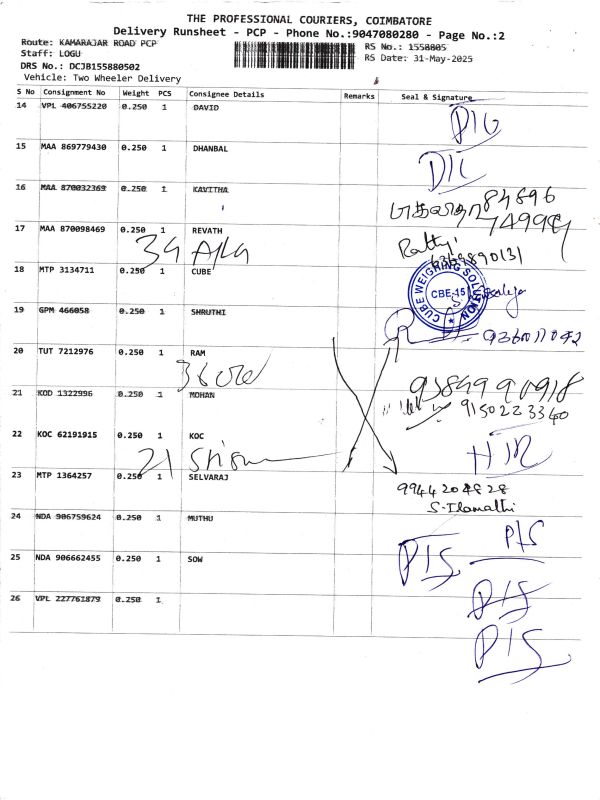 THE PROFESSIONAL COURIERS, COIMBATORE
Delivery Runsheet - PCP - Phone No.:9047080280 - Page No.:2
Route: KAMARAJAR ROAD PCP
RS No.: 1558805
Staff: LOGU
RS Date: 31-May-2025
DRS No.: DCJB155880502
Vehicle: Two Wheeler Delivery
S No Consignment No Weight PCS Consignee Details Remarks Seal & Signature
14 VPL 406755220 0.250 1 DAVID
15 MAA 869779430 0.250 1 DHANBAL
16 MAA 870032369 0.250 1 KAVITHA
17 MAA 870098469 0.250 1 REVATH
18 MTP 3134711 0.250 1 CUBE
CUBE WEIGHING SOLUTION
CBE-15
19 GPM 466058 0.250 1 SHRUTHI
20 TUT 7212976 0.250 1 RAM
21 KOD 1322996 0.250 1 MOHAN
9150223340
22 KOC 62191915 0.250 1 KOC
23 MTP 1364257 0.250 1 SELVARAJ
9944204828
S. Ilamathi
24 NDA 906759624 0.250 1 MUTHU
P/S
25 NDA 906662455 0.250 1 SOW
P/S
26 VPL 227761879 0.250 1
P/S